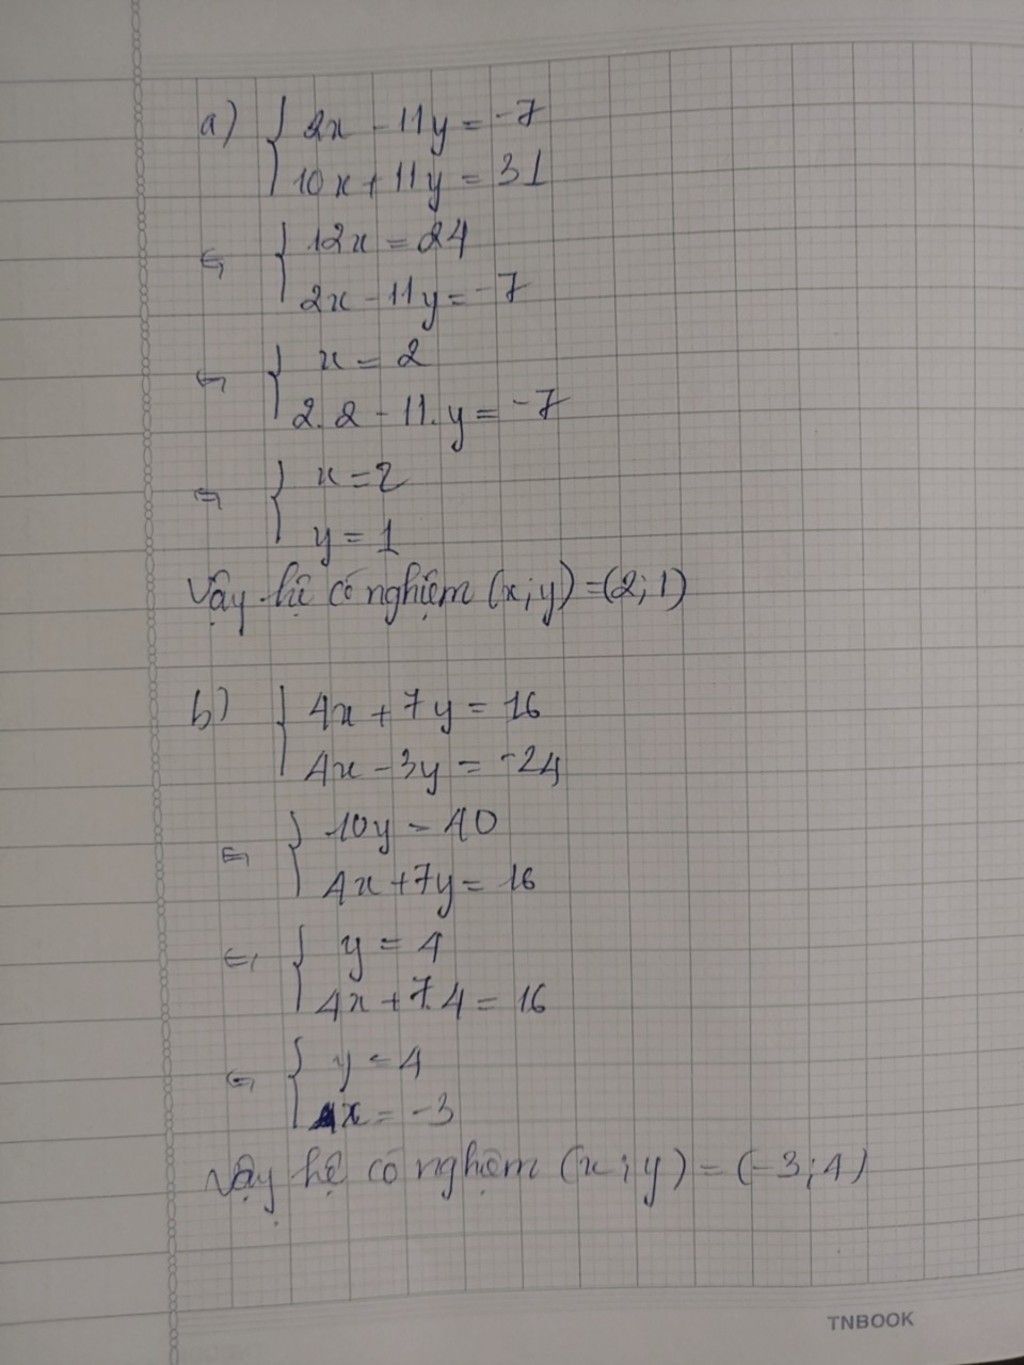 a) { 2x - 11y = -7
10x + 11y = 31
⇔ { 12x = 24
2x - 11y = -7
⇔ { x = 2
2. 2 - 11. y = -7
⇔ { x = 2
y = 1
Vậy hệ có nghiệm (x; y) = (2; 1)
b) { 4x + 7y = 16
4x - 3y = -24
⇔ { 10y = 40
4x + 7y = 16
⇔ { y = 4
4x + 7.4 = 16
⇔ { y = 4
x = -3
Vậy hệ có nghiệm (x; y) = (-3; 4)
TNBOOK